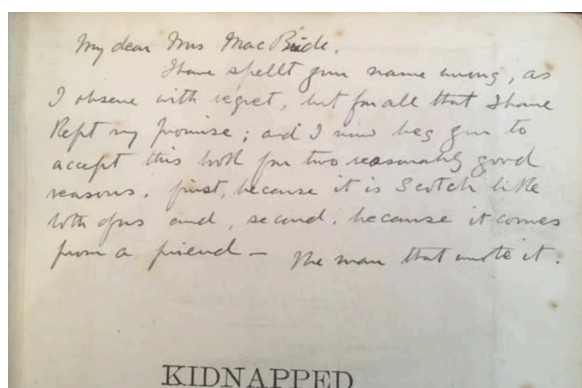 My dear Mrs MacBride,
I have spellt your name wrong, as
I observe with regret, but for all that I have
Kept my promise; and I now beg you to
accept this book for two reasonably good
reasons. first, because it is Scotch like
both of us and, second, because it comes
from a friend — The man that wrote it.
KIDNAPPED